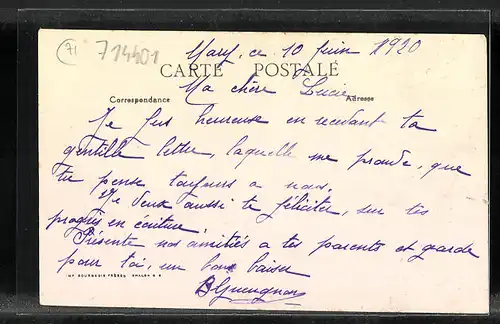 71 714401
Mary, ce 10 Juin 1920
CARTE POSTALE
Ma chère Lucie
Correspondance Adresse
Je fus heureuse en recevant ta
gentille lettre, laquelle me prouve, que
tu pense toujours a nous.
Je veux aussi te féliciter, sur tes
progrès en écriture.
Présente nos amitiés a tes parents et garde
pour toi, un bon baiser
IMP. BOURGEOIS FRÈRES CHALON S S